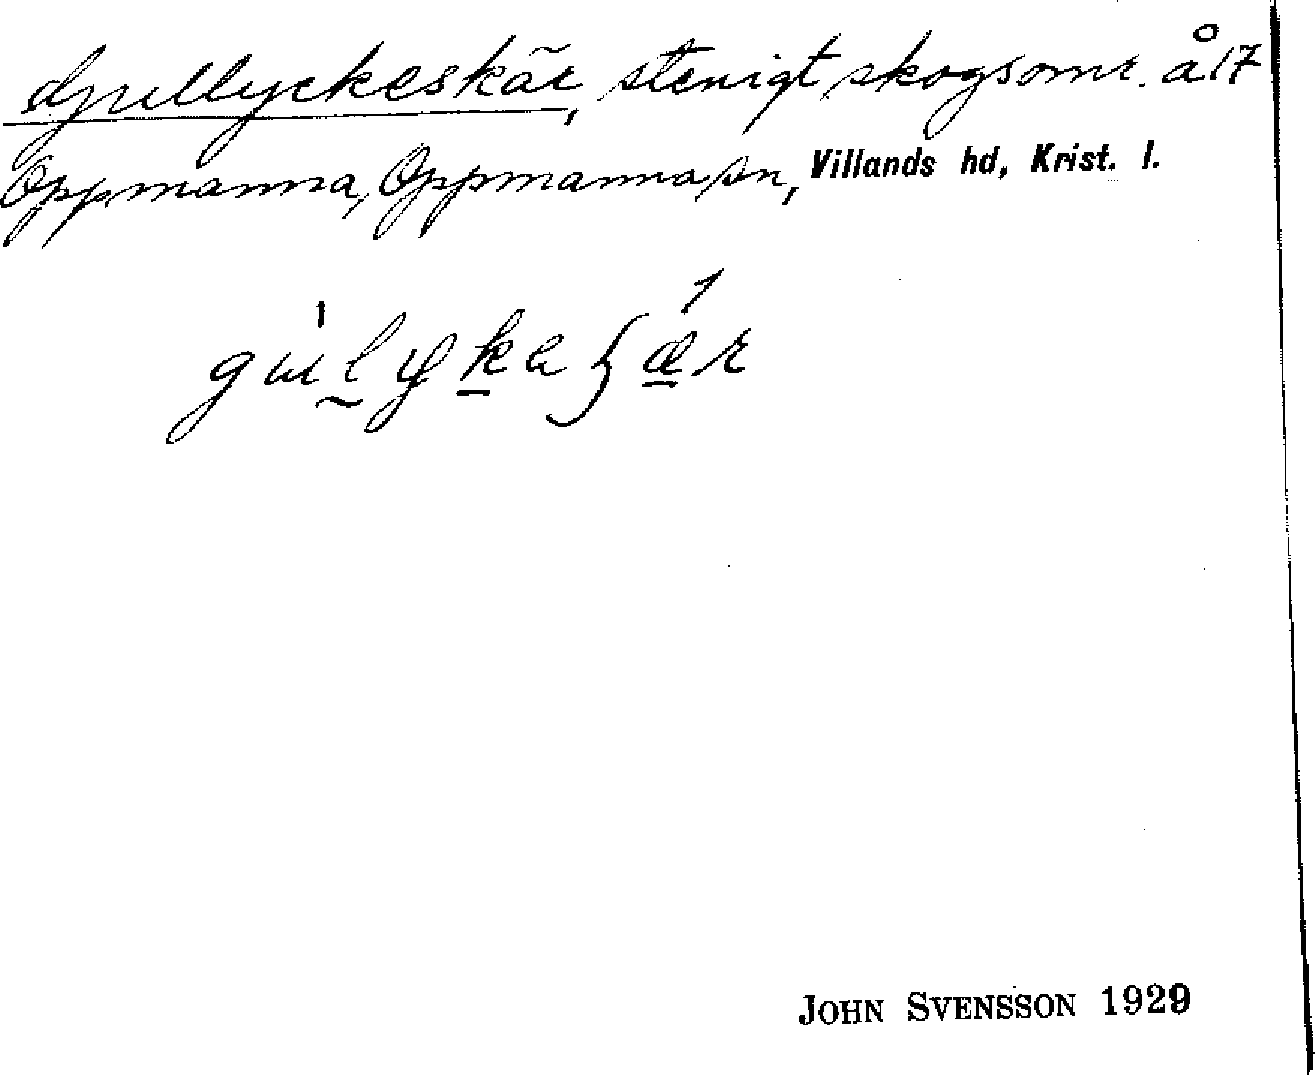 Djullyckeskär, stenigt skogsomr. å 17
Oppmanna, Oppmanna sn, Villands hd, Krist. l.
JOHN SVENSSON 1929